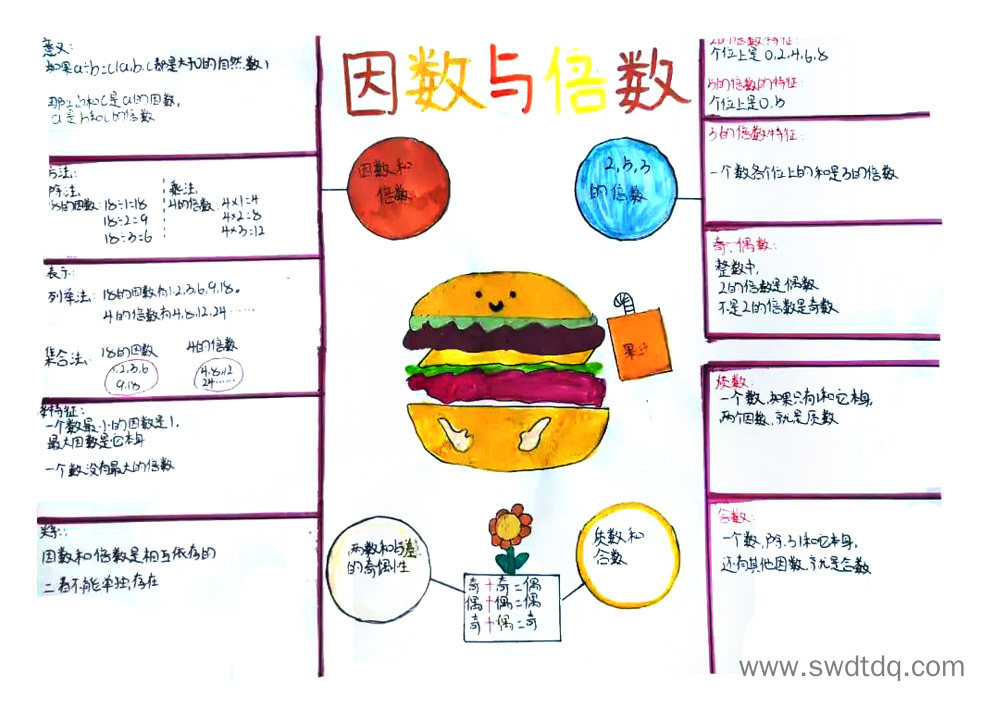 因数与倍数
意义:
如果a÷b=c(a.b.c都是大于0的自然数)
那么b和c是a的因数,
a是b和c的倍数
方法:
除法
18的因数:18÷1=18
18÷2=9
18÷3=6
乘法
4的倍数:4×1=4
4×2=8
4×3=12
表示:
列举法: 18的因数有1.2.3.6.9.18。
4的倍数有4.8.12.24……
集合法: 18的因数
1.2.3.6
9.18.
4的倍数
4.8.12
24……
特征:
一个数最小的因数是1,
最大因数是它本身
一个数没有最大的倍数
关系:
因数和倍数是相互依存的
二者不能单独存在
因数和
倍数
2,5,3
的倍数
果汁
两数和与差
的奇偶性
奇+奇=偶
偶+偶=偶
奇+偶=奇
质数和
合数
2的倍数特征:
个位上是0,2,4,6,8
5的倍数的特征:
个位上是0,5
3的倍数特征:
一个数各个位上的和是3的倍数
奇、偶数:
整数中,
2的倍数是偶数
不是2的倍数是奇数
质数:
一个数,如果只有1和它本身,
两个因数,就是质数
合数:
一个数,除了1和它本身,
还有其他因数,就是合数
www.swdtdq.com